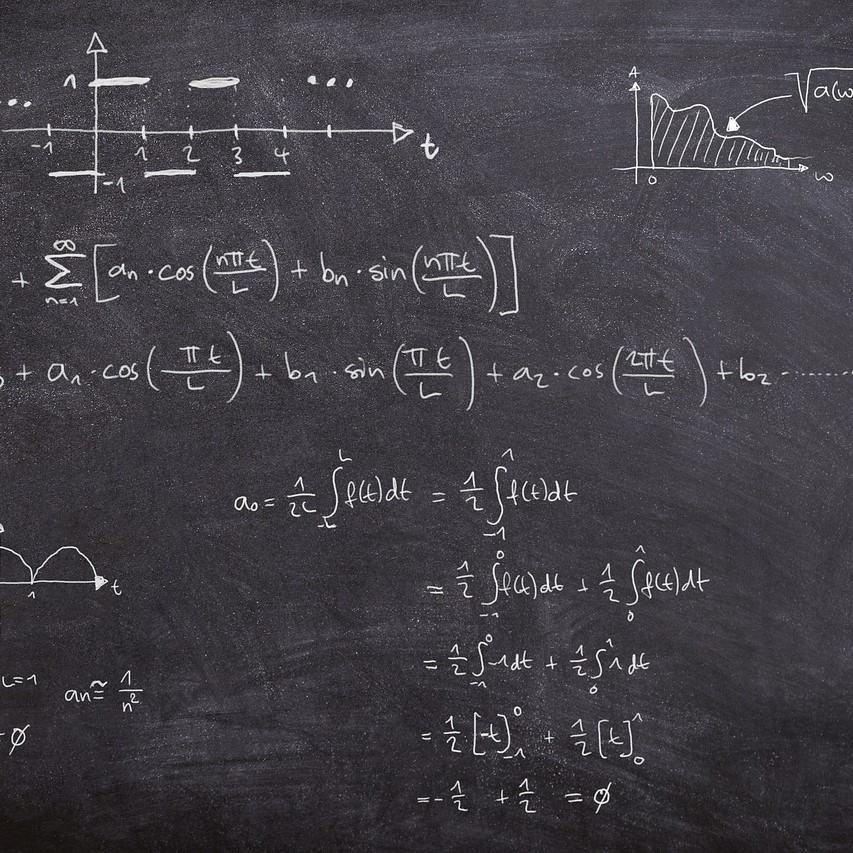 1
-1 1 2 3 4 t
-1
A
√a(w
0 w
+ ∞ Σ n=1 [an · cos (nπt/L) + bn · sin (nπt/L)]
+ a1 · cos (πt/L) + b1 · sin (πt/L) + a2 · cos (2πt/L) + b2 ........
a0 = 1/2L ∫_-L^L f(t)dt = 1/2 ∫_-1^1 f(t)dt
= 1/2 ∫_-1^0 f(t)dt + 1/2 ∫_0^1 f(t)dt
t
1
= 1/2 ∫_-1^0 -1dt + 1/2 ∫_0^1 1dt
L=1 an ≅ 1/n²
= 1/2 [-t]_-1^0 + 1/2 [t]_0^1
= ∅
= - 1/2 + 1/2 = ∅